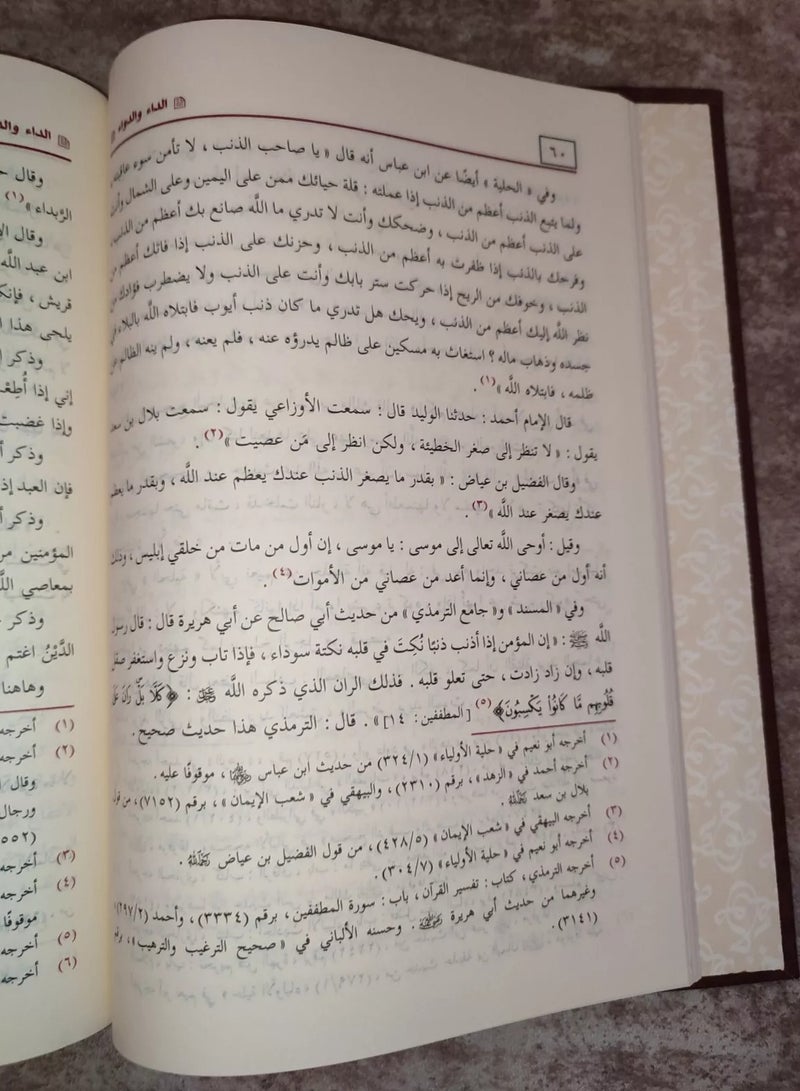 الداء والدواء
٦٠
وفي « الحلية » أيضًا عن ابن عباس أنه قال « يا صاحب الذنب ، لا تأمن سوء عاقبته ،
ولما يتبع الذنب أعظم من الذنب إذا عملته : قلة حيائك ممن على اليمين وعلى الشمال وأنت
على الذنب أعظم من الذنب ، وضحكك وأنت لا تدري ما اللَّه صانع بك أعظم من الذنب ،
وفرحك بالذنب إذا ظفرت به أعظم من الذنب ، وحزنك على الذنب إذا فاتك أعظم من
الذنب ، وخوفك من الريح إذا حركت ستر بابك وأنت على الذنب ولا يضطرب فؤادك من
نظر اللَّه إليك أعظم من الذنب ، ويحك هل تدري ما كان ذنب أيوب فابتلاه اللَّه بالبلاء في
جسده وذهاب ماله ؟ استغاث به مسكين على ظالم يدرؤه عنه ، فلم يعنه ، ولم ينه الظالم عن
ظلمه ، فابتلاه اللَّه »(١) .
قال الإمام أحمد : حدثنا الوليد قال : سمعت الأوزاعي يقول : سمعت بلال بن سعد
يقول : « لا تنظر إلى صغر الخطيئة ، ولكن انظر إلى مَن عصيت »(٢) .
وقال الفضيل بن عياض : « بقدر ما يصغر الذنب عندك يعظم عند اللَّه ، وبقدر ما يعظم
عندك يصغر عند اللَّه »(٣) .
وقيل : أوحى اللَّه تعالى إلى موسى : يا موسى ، إن أول من مات من خلقي إبليس ، وذلك
أنه أول من عصاني ، وإنما أعد من عصاني من الأموات(٤) .
وفي « المسند » و« جامع الترمذي » من حديث أبي صالح عن أبي هريرة قال : قال رسول
اللَّه ﷺ : « إن المؤمن إذا أذنب ذنبًا نُكِتَ في قلبه نكتة سوداء ، فإذا تاب ونزع واستغفر صقل
قلبه ، وإن زاد زادت ، حتى تعلو قلبه . فذلك الران الذي ذكره اللَّه ﷻ : ﴿كَلَّا بَلْ رَانَ عَلَى
قُلُوبِهِم مَّا كَانُوا يَكْسِبُونَ﴾(٥) [المطففين : ١٤] » . قال : الترمذي هذا حديث صحيح .
(١) أخرجه أبو نعيم في « حلية الأولياء » (٣٢٤/١) من حديث ابن عباس ، موقوفًا عليه .
(٢) أخرجه أحمد في « الزهد » ، برقم (٢٣١٠) ، والبيهقي في « شعب الإيمان » ، برقم (٧١٥٢) ، من قول
بلال بن سعد .
(٣) أخرجه البيهقي في « شعب الإيمان » (٤٢٨/٥) ، من قول الفضيل بن عياض .
(٤) أخرجه أبو نعيم في « حلية الأولياء » (٣٠٤/٧) .
(٥) أخرجه الترمذي ، كتاب : تفسير القرآن ، باب : سورة المطففين ، برقم (٣٣٣٤) ، وأحمد (٢٩٧/٢)
وغيرهما من حديث أبي هريرة . وحسنه الألباني في « صحيح الترغيب والترهيب » ، برقم
(٣١٤١) .
الداء والد
وقال
الرَّبداء »(١)
وقال
ابن عبد اللَّه
قريش ، فإنك
يلحى هذا
وذكر
إني إذا أُطعْـ
وإذا غضبت
وذكر
فإن العبد إذ
وذكر
المؤمنين
بمعاصي
وذكر
الدَّيْنُ اغتم
وهاهنا
(١) أخرجه
(٢) أخرجه
وقال
ورجال
(٣) أخرجه
(٤) أخرجه
موقوفًا
(٥) أخرجه
(٦) أخرجه